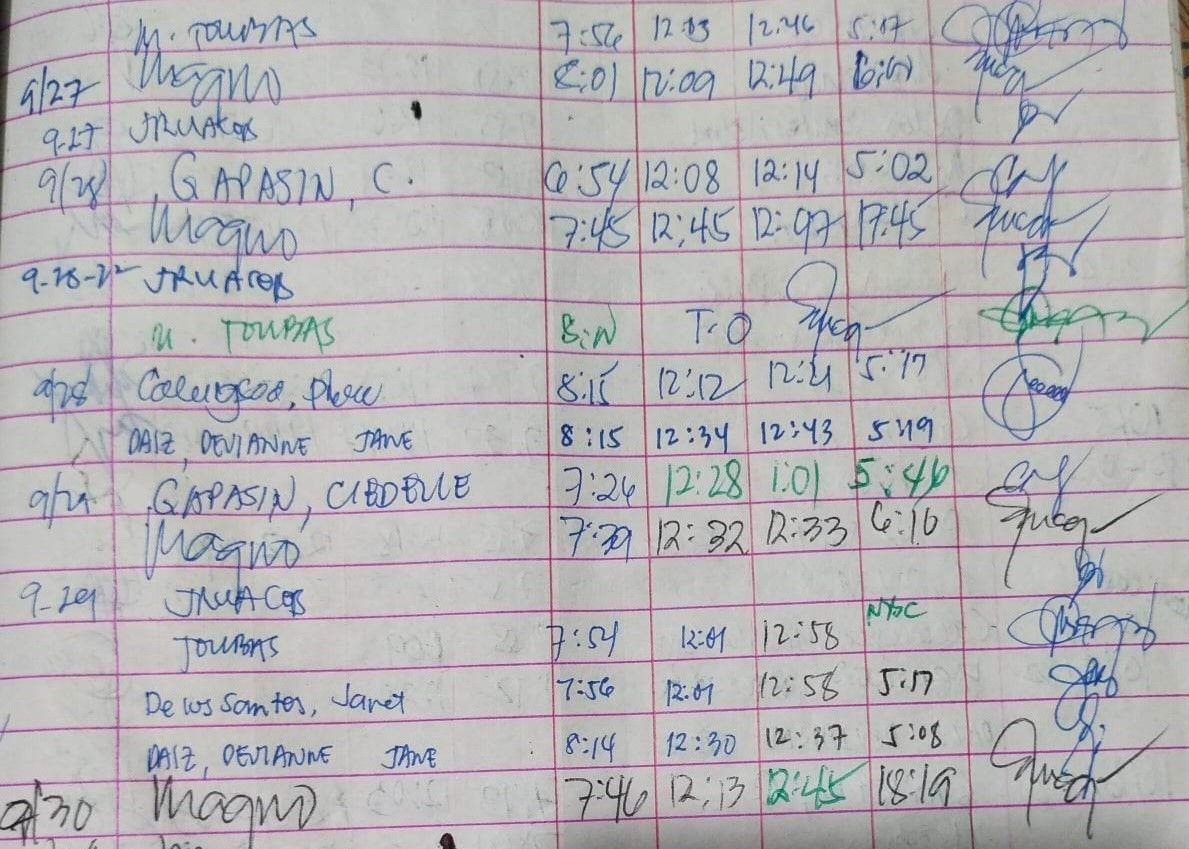 M. TOUBAS 7:56 12:03 12:46 5:17
9/27 Magno 8:01 12:09 12:49
9.27 JRUACOB
9/28 GAPASIN, C. 6:54 12:08 12:14 5:02
Magno 7:45 12:45 12:97 17:45
9-28-22 JRUACOB
M. TOUBAS T.O
9/28 8:15 12:12 12:21 5:17
DAIZ, DEVIANNE JANE 8:15 12:34 12:43 5:19
9/29 GAPASIN, CIEDELLE 7:26 12:28 1:01 5:46
Magno 7:39 12:32 12:33 6:16
9-29 JRUACOB
TOUBAS 7:54 12:01 12:58
De los Santos, Janet 7:56 12:01 12:58 5:17
DAIZ, DEVIANNE JANE 8:14 12:30 12:37 5:08
9/30 Magno 7:46 12:13 12:45 18:19